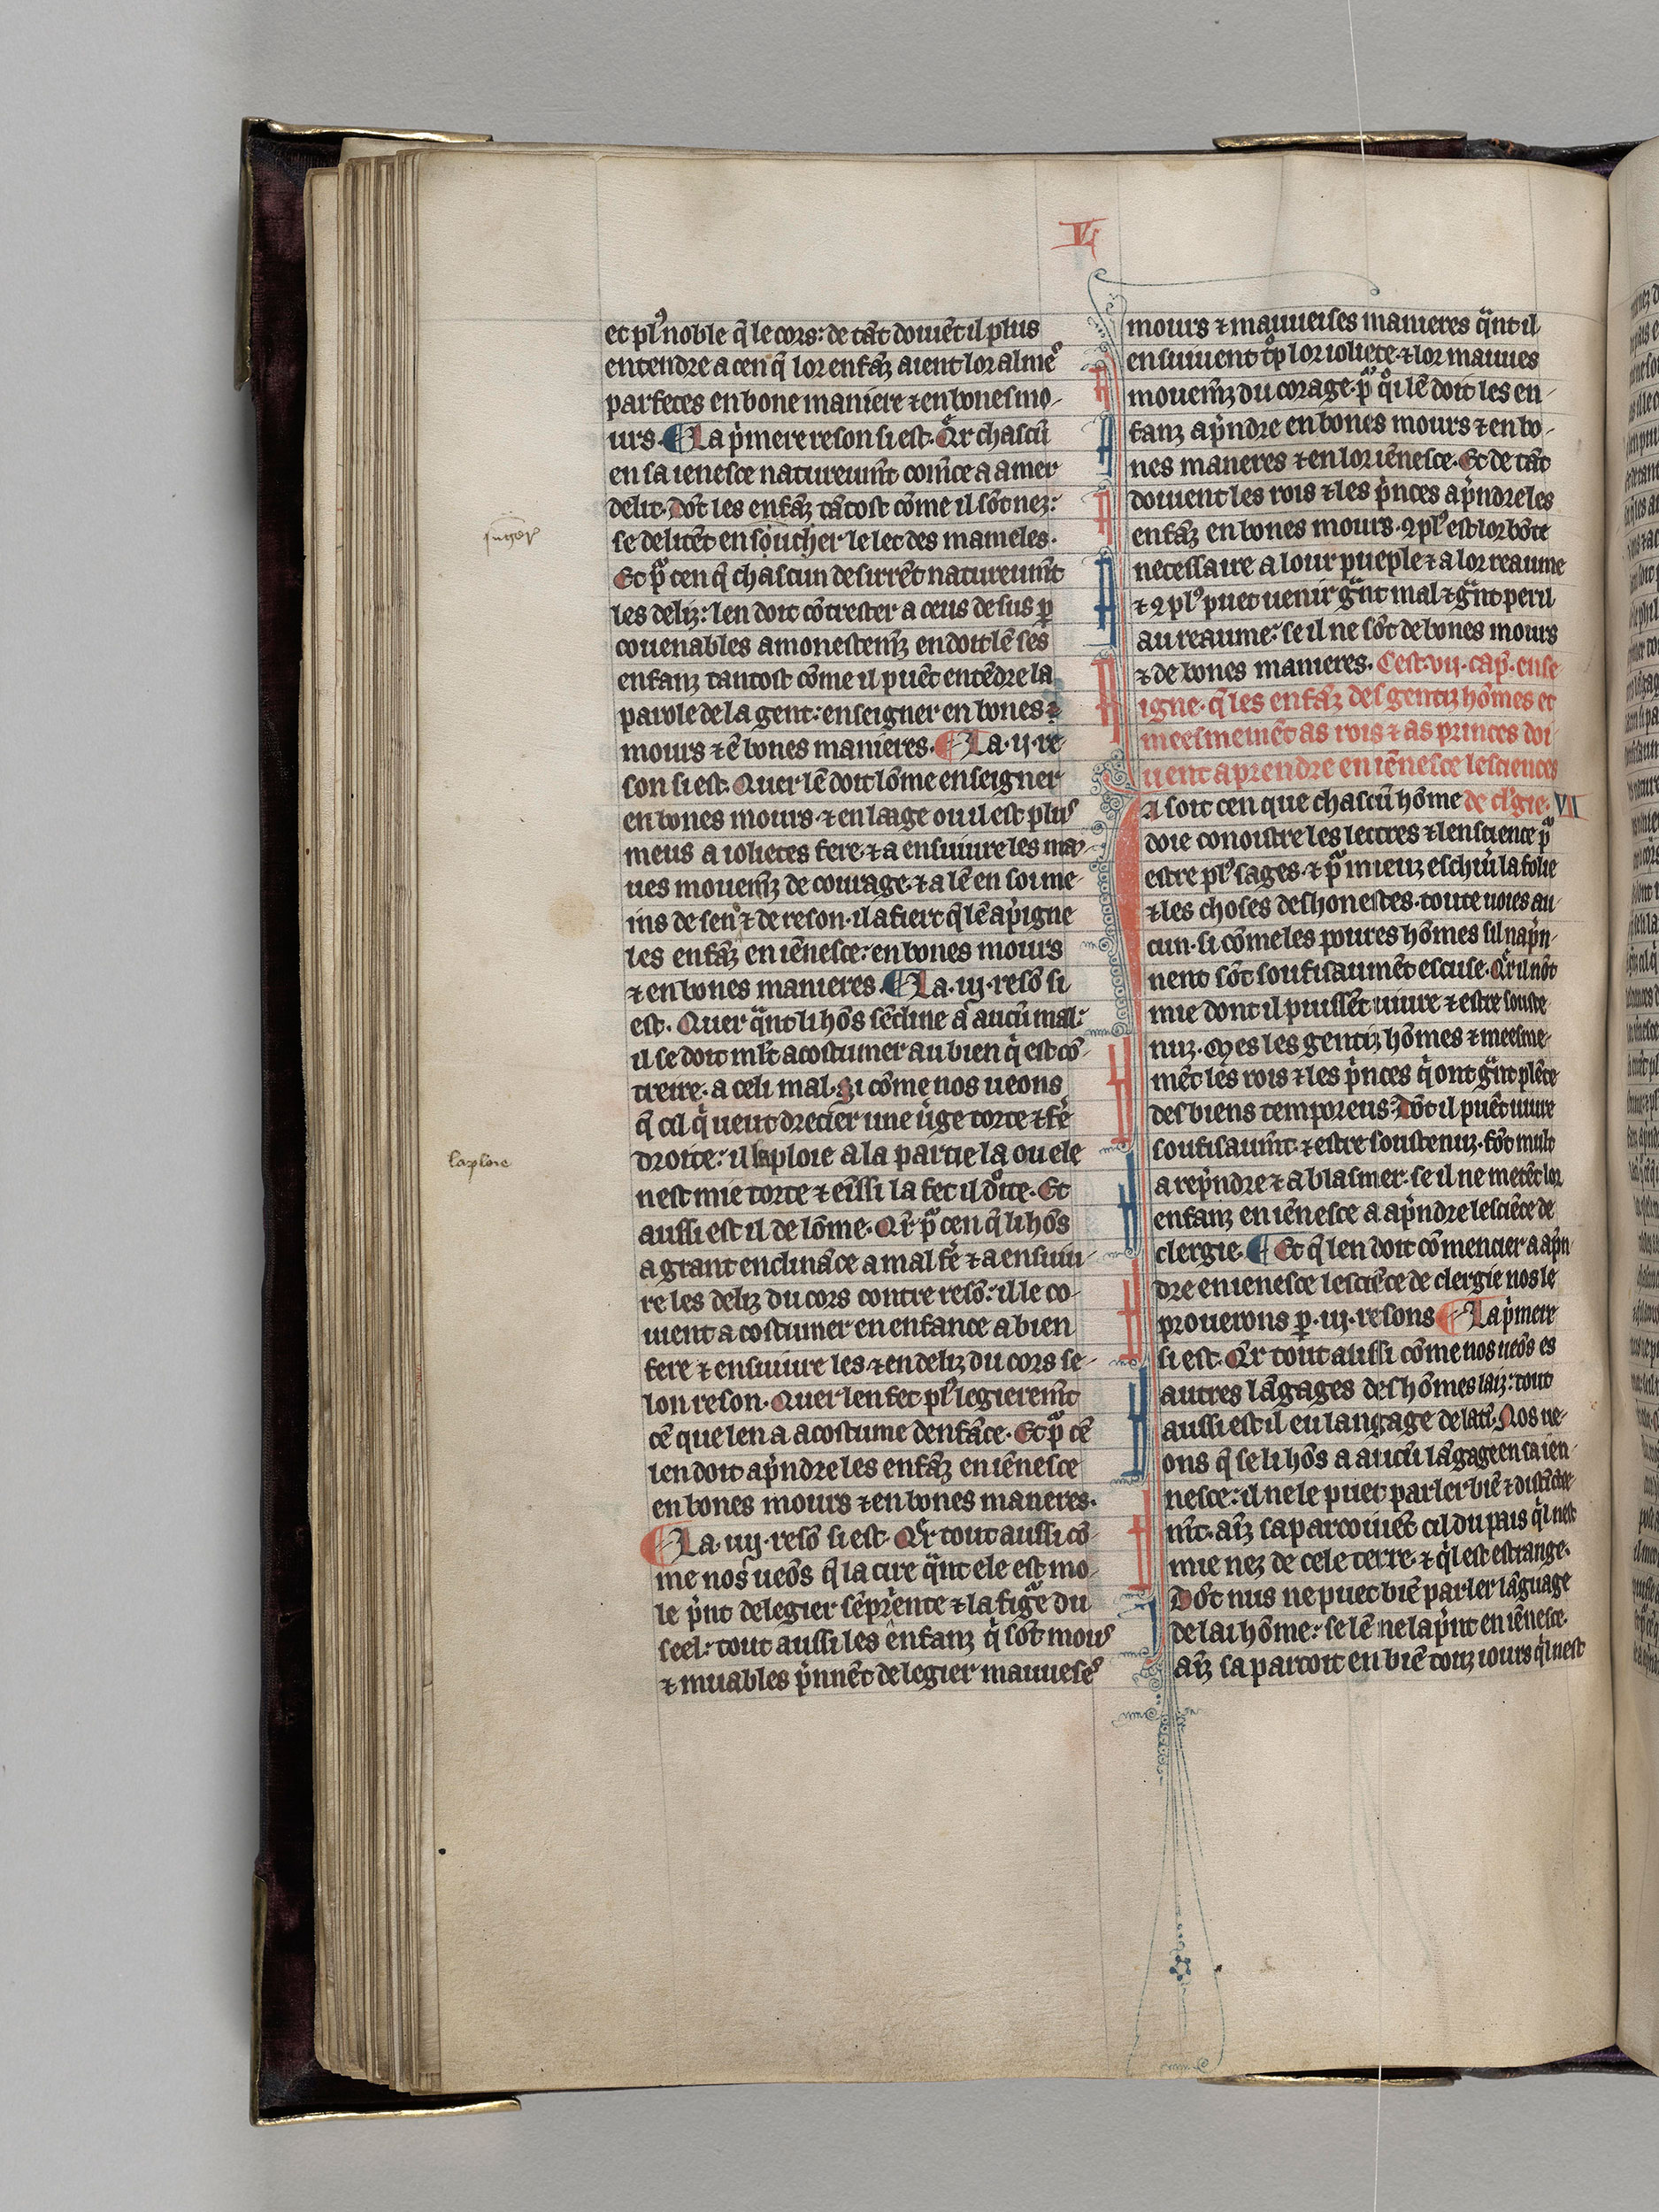 V
et plꝰ noble q̄ le cors: de tāt doiuēt il plus
entendre a cen q̄ lor enfāz aient lor almeˢ
parfetes en bone maniere ⁊ en bones mo-
urs. ¶ La p̍mere reson si est. Qͣr chascū
en sa ienesce natureumt̄ com̄ce a amer
delit. Dōt les enfāz tātost cōme il sōt nez:
se delitēt en soucher le let des mameles.
Et pͦ cen q̄ chascun desirrēt natureumt̄
les deliz: len doit cōtrester a ceus desus ꝑ
couenables amonestem̄z en doit lē ses
enfanz tantost cōme il puēt entēdre la
parole de la gent: enseigner en bones ⁊
mours ⁊ ē bones manieres. ¶ La .ij. re-
son si est. Quer lē doit lōme enseigner
en bones mours ⁊ en laage ou il est plus
meus a iolietes fere ⁊ a ensuiure les mau-
ues mouem̄z de courage ⁊ a lē en soi me-
ins de sen ⁊ de reson. il afiert q̄ lē ap̍igne
les enfāz en iēnesce: en bones mours
⁊ en bones manieres. ¶ La .iij. resō si
est. Quer qͣnt li hōs sēcline a aucū mal:
il se doit ml̄t acostumer au bien q̍ est cō-
treire a celi mal. Si cōme nos ueons
q̄ cil q̍ ueut drecier une u̍ge torte ⁊ fē
droite: il la ploie a la partie la ou ele
nest mie torte ⁊ eīssi la fet il dͦite. Et
aussi est il de lōme. Qͣr pͦ cen q̄ li hōs
a grant enclināce a mal fē ⁊ a ensuiu-
re les deliz du cors contre resō: il le co-
uient acostumer en enfance a bien
fere ⁊ ensuiure les ⁊en deliz du cors se-
lon reson. Quer len fet plꝰ legieremt̄
cē que len a acostume denfāce. Et pͦ cē
len doit ap̍ndre les enfāz en iēnesce
en bones mours ⁊ en bones maneres.
¶ La .iiij. resō si est. Qͣr tout aussi cō-
me nos ueōs q̄ la cire qͣnt ele est mo-
le p̍nt de legier lēp̍rente ⁊ la figͥe du
seel: tout aussi les enfanz q̍ sōt mous
⁊ muables p̍nnēt de legier mauueseˢ
sug̃er
la ploie
mours ⁊ mauueises manieres qͣnt il
ensuiuent tͦp lor ioliete ⁊ lor mauues
mouem̄z du corage. pͦ qͦi lē doit les en-
fanz ap̍ndre en bones mours ⁊ en bo-
nes maneres ⁊ en lor iēnesce. Et de tāt
doiuent les rois ⁊ les p̍nces ap̍ndre les
enfāz en bones mours. ꝯ plꝰ est lor bōte
necessaire a lour pueple ⁊ a lor reaume
⁊ ꝯ plꝰ puet uenir gͣnt mal ⁊ gͣnt peril
au reaume: se il ne sōt de bones mours
⁊ de bones manieres. Cest .vij. cap̄. ense
igne. q̄ les enfāz des gentiz hōmes et
meesmemēt as rois ⁊ as princes doi-
uent aprendre en iēnesce le sciences
de cl̍gie. VII
Ia soit cen que chascū hōme
doie conoistre les lettres ⁊ len science pͦ
estre plꝰ sages ⁊ pͦ mieuz eschiu̍ la folie
⁊ les choses deshonestes. toute uoies au-
cun. si cōme les poures hōmes sil nap̍n-
nent sōt soufisaumēt escuse. Qͣr il nōt
mie dont il puissēt uiure ⁊ estre souste
nuz. Mes les gentiz hōmes ⁊ meesme-
mēt les rois ⁊ les p̍nces q̍ ont gͣnt plēte
des biens temporeus: Dōt il puēt uiure
soufisaumt̄ ⁊ estre soustenuz. fōt mult
a rep̍ndre ⁊ a blasmer. se il ne metēt lor
enfanz en iēnesce a ap̍ndre le sciēce de
clergie. ¶ Et q̄ len doit cōmencier a ap̍n
dre en ienesce le sciēce de clergie nos le
prouerons ꝑ .iij. resons ¶ La p̍mere
si est. Qͣr tout aussi cōme nos ueōs es
autres lāgages des hōmes laiz: tout
aussi est il eu langage de latī. Nos ue-
ons q̄ se li hōs a aucū lāgage en sa ien-
nesce: il ne le puet parler biē ⁊ distīcte-
mt̄. aīz saparcoiuēt cil du pais q̍l nest
mie nez de cele terre ⁊ q̍l est estrange.
Dōt nus ne puet biē parler lāguage
de lai hōme: se lē ne lap̍nt en iēnesce.
aīz sapartoit en biē touz iours q̍l nest